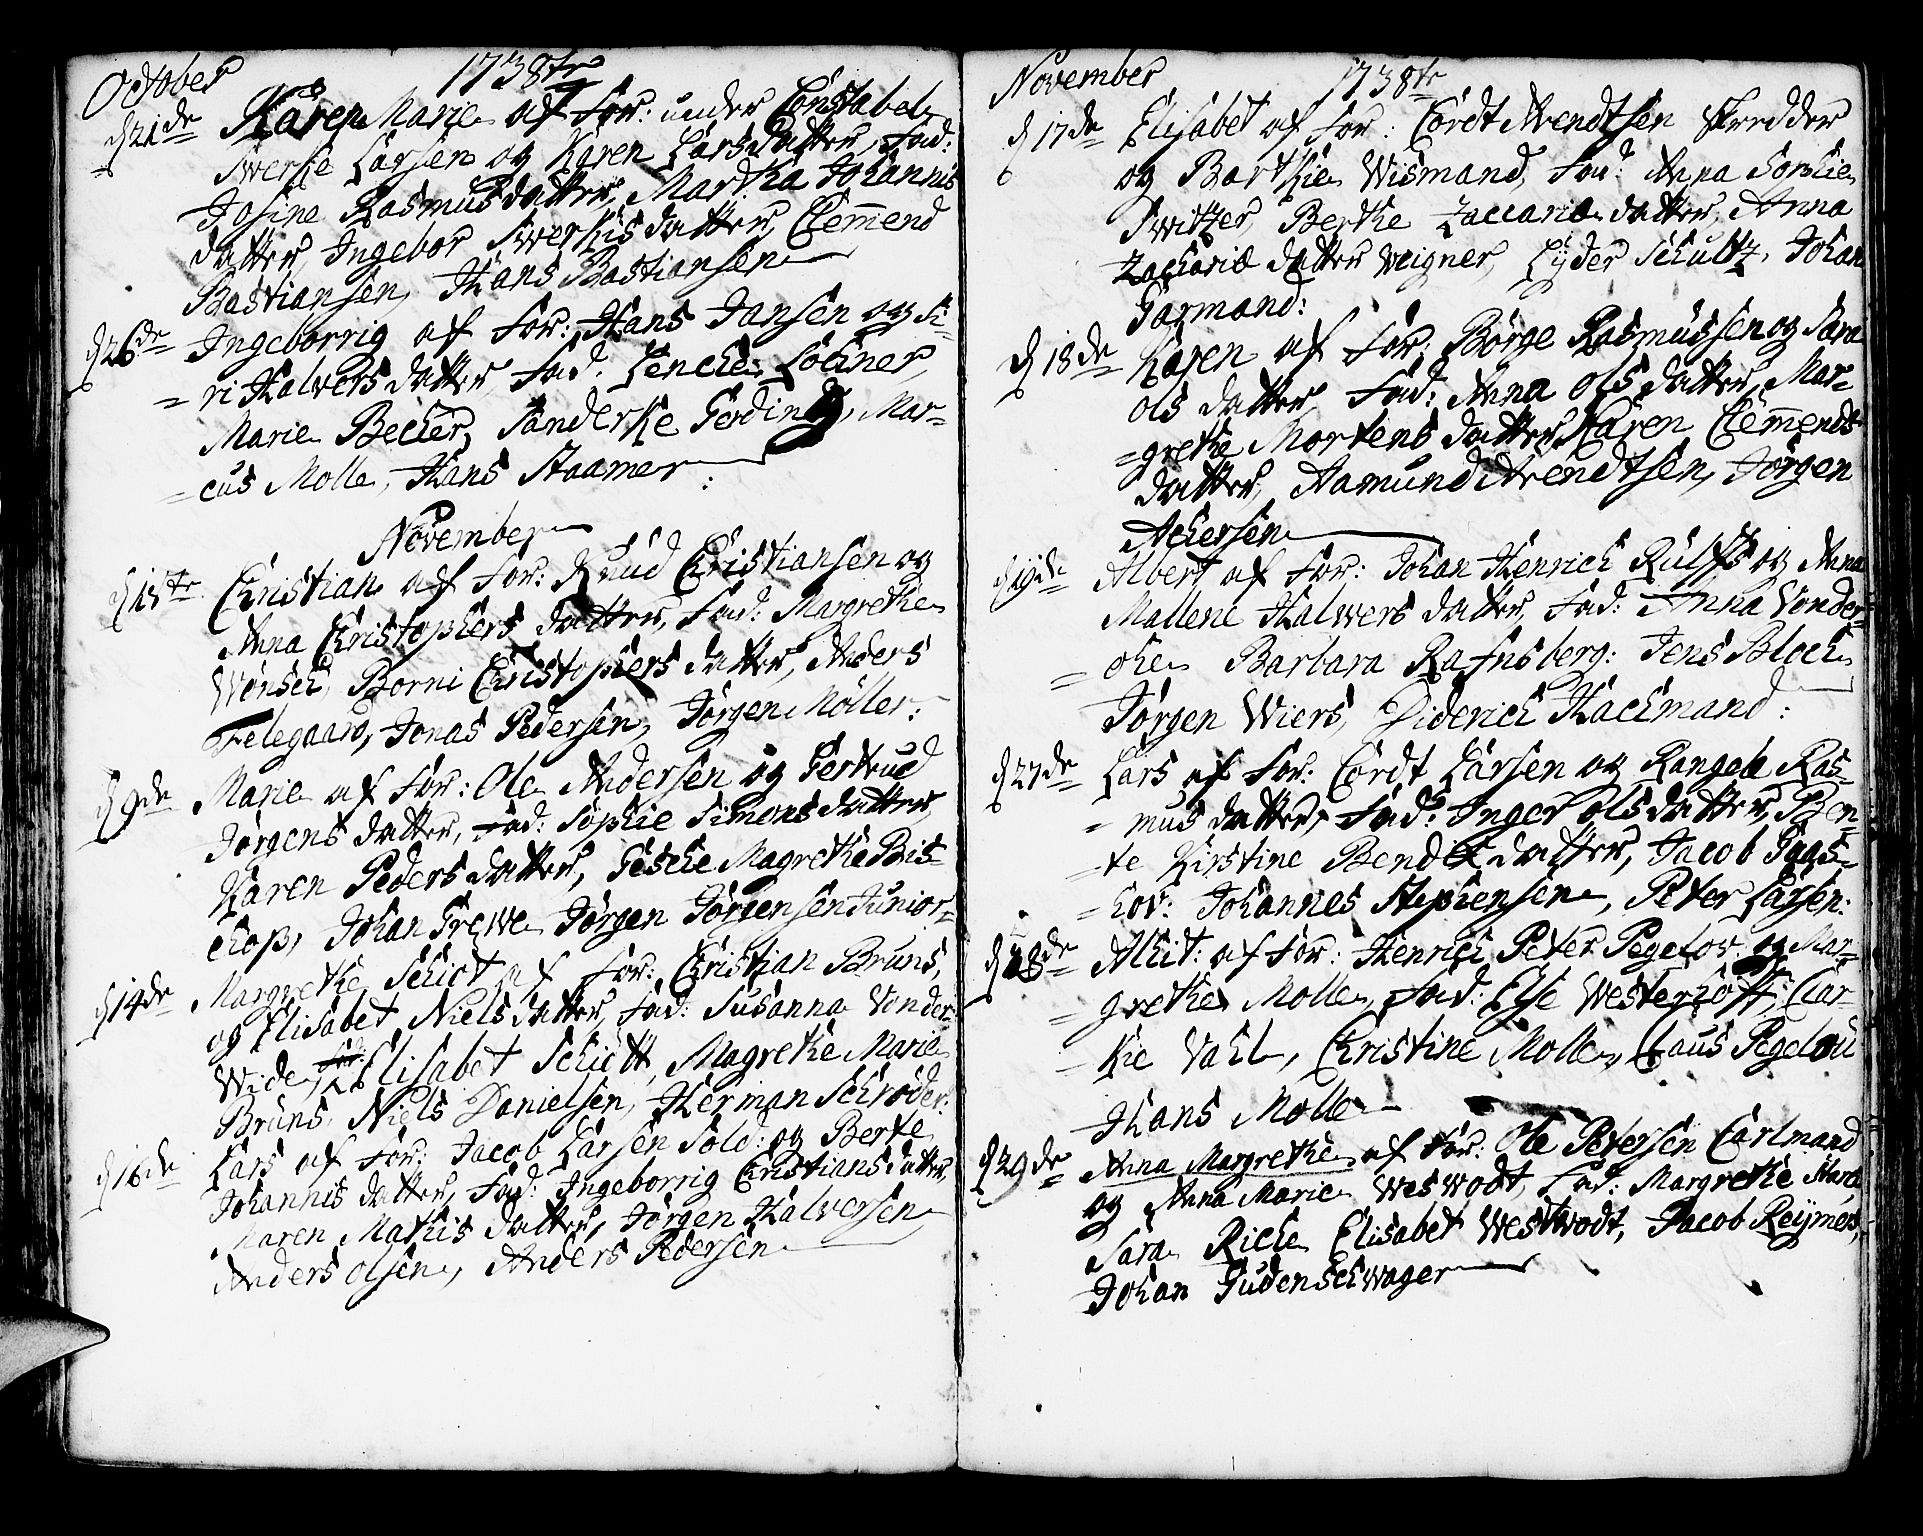 October 1738te
d 21de Karen Marie af For: under Constabel
Sverke Larsen og Karen Larsdatter, Fad:
Josine Rasmusdatter, Martha Johannis
datter, Ingebor Swerkis datter, Clemend
Bastiansen, Hans Bastiansen
d 26de Ingeborrig af For: Hans Jansen og Si-
= ri Halvers datter, Fad: Lenche Lochner,
Marie Becher, Sanderke Gerding, Mar-
= cus Molle, Hans Staamer :
November
Christian af For: Knud Christiansen og
Anna Christophers datter, Fad: Margrethe
Wonsch, Borni Christophers datter, Anders
Felegaard, Jonas Pedersen, Jørgen Möller:
d 9de Marie af For: Ole Andersen og Gertrud
Jørgens datter, Fad: Sophie Simons datter,
Karen Peders datter, Gesche Magrethe Bis-
chop, Johan Grewe Jørgen Jørgensen Junior
d 14de Margrethe Schiot af For: Christian Bruns,
og Elisabet Niels datter, Fad: Susanna Vonder
Wide, Elisabet Schiøtt, Magrethe Marie
Bruns, Niels Danielsen, Herman Schrøder:
d 16de Lars af For: Jacob Larsen Sold: og Berte
Johannis datter, Fad: Ingeborrig Christians datter,
Maren Mathis datter, Jørgen Halversen
Anders Olsen, Anders Pedersen
November 1738te
d 17de Elisabet af For: Cordt Arendtsen Skredder
og Barthie Wismand, Fad: Anna Sophie
Switzer, Berthe Zaccariæ datter, Anna
Zachariæ datter Weigner, Lyder Schultz, Johan
Garmand:
d 18de Karen af For: Börge Rasmussen og Sara
Ols datter, Fad: Anna Ols datter, Mar-
= grethe Mortens datter, Karen Clemends
datter, Aamund Arendtsen, Jørgen
Achersen
d 19de Albert af For: Johan Henrich Rulffs og Anna
Mallene Halvers datter, Fad: Anna Vonder-
= ohe Barbara Rafnsberg: Jens Bloch
Jørgen Wiers, Diderich Hachmand:
d 27de Lars af For: Cordt Larsen og Rangele Ras-
= mus datter, Fad: Inger Ols datter, Ben-
= te Kirstine Bendix datter, Jacob Paas-
= hov: Johannes Stephensen, Peter Larsen:
d 28de Alhit: af For: Henrich Peter Pegelov og Mar-
= grethe Molle, Fad: Else Westerhoff: Clar-
= hie Vahl, Christine Molle, Claus Pegelou
Hans Molle
d 29de Anna Margrethe af For: Ole Petersen Carlmand
og Anna Marie Weswodt, Fad: Margrethe
Sara Riche Elisabet Westwodt, Jacob Reijmers,
Johan Gudenschwager